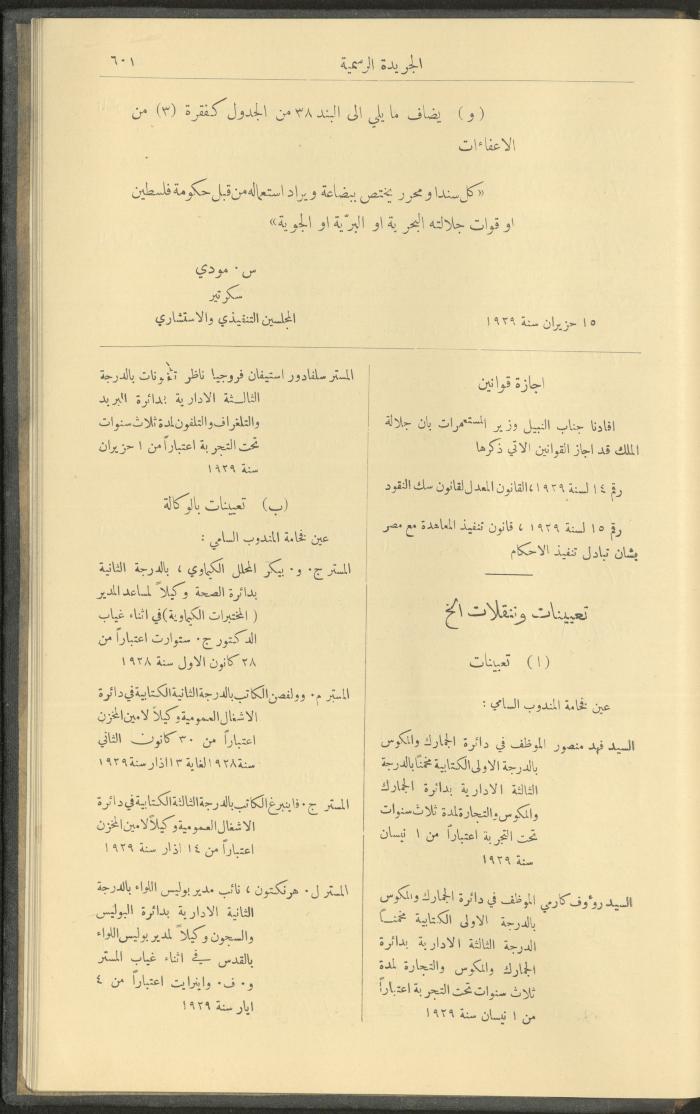 الجريدة الرسمية
٦٠١
(و) يضاف ما يلي الى البند ٣٨ من الجدول كفقرة (٣) من
الاعفاءات
«كل سند او محرر يختص ببضاعة ويراد استعماله من قبل حكومة فلسطين
او قوات جلالته البحرية او البرّية او الجوية»
س. مودي
سكرتير
المجلسين التنفيذي والاستشاري
١٥ حزيران سنة ١٩٢٩
اجازة قوانين
افادنا جناب النبيل وزير المستعمرات بان جلالة
الملك قد اجاز القوانين الاتي ذكرها
رقم ١٤ لسنة ١٩٢٩، القانون المعدل لقانون سك النقود
رقم ١٥ لسنة ١٩٢٩ ، قانون تنفيذ المعاهدة مع مصر
بشان تبادل تنفيذ الاحكام
تعيينات وتنقلات الخ
(ا) تعيينات
عين فخامة المندوب السامي :
السيد فهد منصور الموظف في دائرة الجمارك والمكوس
بالدرجة الاولى الكتابية مخمناً بالدرجة
الثالثة الادارية بدائرة الجمارك
والمكوس والتجارة لمدة ثلاث سنوات
تحت التجربة اعتباراً من ١ نيسان
سنة ١٩٢٩
السيد رؤوف كارمي الموظف في دائرة الجمارك والمكوس
بالدرجة الاولى الكتابية مخمنـاً
الدرجة الثالثة الادارية بدائرة
الجمارك والمكوس والتجارة لمدة
ثلاث سنوات تحت التجربة اعتباراً
من ١ نيسان سنة ١٩٢٩
المستر سلفادور استيفان فروجيا ناظر تلفونات بالدرجة
الثالـثة الادارية بدائرة البريد
والتلغراف والتلفون لمدة ثلاث سنوات
تحت التجربة اعتباراً من ١ حزيران
سنة ١٩٢٩
(ب) تعيينات بالوكالة
عين فخامة المندوب السامي :
المستر ج. و. بيكر المحلل الكيماوي ، بالدرجة الثانية
بدائرة الصحة وكيلاً لمساعد المدير
(المختبرات الكيماوية) في اثناء غياب
الدكتور ج. ستوارت اعتباراً من
٢٨ كانون الاول سنة ١٩٢٨
المستر م. وولفصن الكاتب بالدرجة الثانية الكتابية في دائرة
الاشغال العمومية وكيلاً لامين المخزن
اعتباراً من ٣٠ كانون الثاني
سنة ١٩٢٨ لغاية ١٣ اذار سنة ١٩٢٩
المستر ج. فاينبرغ الكاتب بالدرجة الثالثة الكتابية في دائرة
الاشغال العمومية وكيلاً لامين المخزن
اعتباراً من ١٤ اذار سنة ١٩٢٩
المستر ل. هرنكتون ، نائب مدير بوليس اللواء بالدرجة
الثانية الادارية بدائرة البوليس
والسجون وكيلاً لمدير بوليس اللواء
بالقدس في اثناء غياب المستر
و. ف. واينرايت اعتباراً من ٤
ايار سنة ١٩٢٩